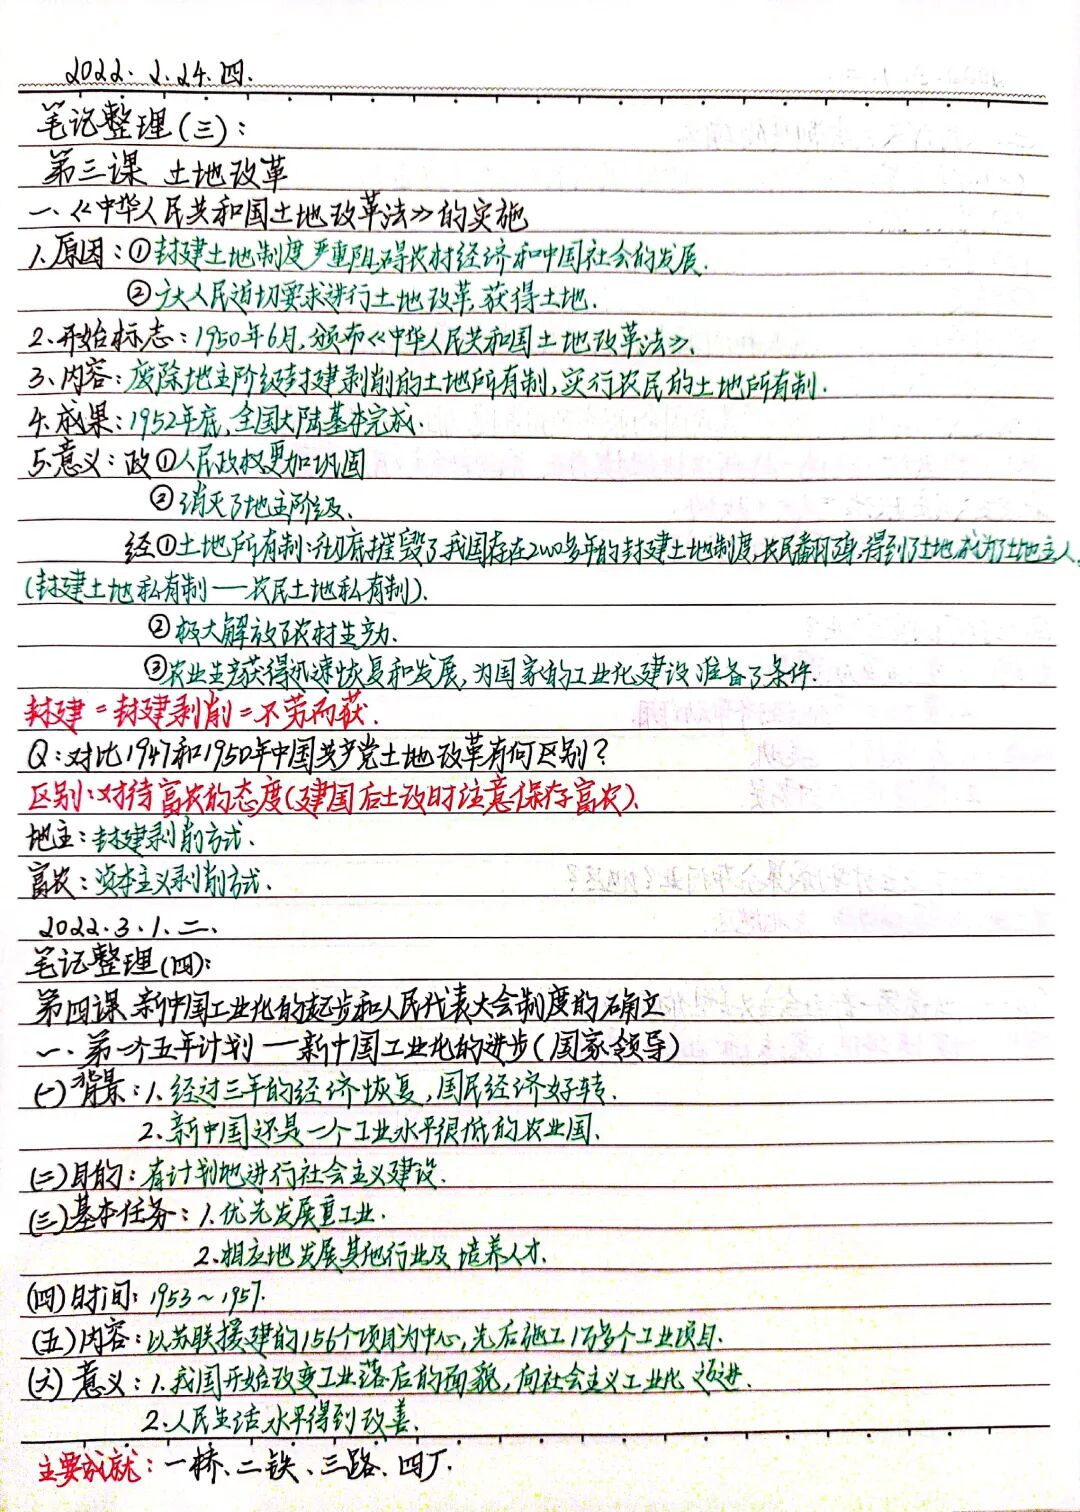 2022.2.24.四.
笔记整理(三):
第三课 土地改革
一、《中华人民共和国土地改革法》的实施
1.原因:①封建土地制度严重阻碍农村经济和中国社会的发展.
②广大人民迫切要求进行土地改革,获得土地.
2.开始标志:1950年6月,颁布《中华人民共和国土地改革法》.
3.内容:废除地主阶级封建剥削的土地所有制,实行农民的土地所有制.
4.成果:1952年底,全国大陆基本完成.
5.意义:政①人民政权更加巩固
②消灭了地主阶级.
经①土地所有制:彻底摧毁了我国存在2000多年的封建土地制度,农民翻了身,得到了土地,成为了土地主人,
(封建土地私有制——农民土地私有制).
②极大解放了农村生产力.
③农业生产获得迅速恢复和发展,为国家的工业化建设准备了条件.
封建=封建剥削=不劳而获.
Q:对比1947和1950年中国共产党土地改革有何区别?
区别:对待富农的态度(建国后土改时注意保存富农).
地主:封建剥削方式.
富农:资本主义剥削方式.
2022.3.1.二.
笔记整理(四):
第四课 新中国工业化的起步和人民代表大会制度的确立
一、第一个五年计划——新中国工业化的进步(国家领导)
(一)背景:1.经过三年的经济恢复,国民经济好转.
2.新中国还是一个工业水平很低的农业国.
(二)目的:有计划地进行社会主义建设.
(三)基本任务:1.优先发展重工业.
2.相应地发展其他行业及培养人才.
(四)时间:1953~1957.
(五)内容:以苏联援建的156个项目为中心,先后施工1万多个工业项目.
(六)意义:1.我国开始改变工业落后的面貌,向社会主义工业化迈进.
2.人民生活水平得到改善.
主要成就:一桥、二铁、三路、四厂.